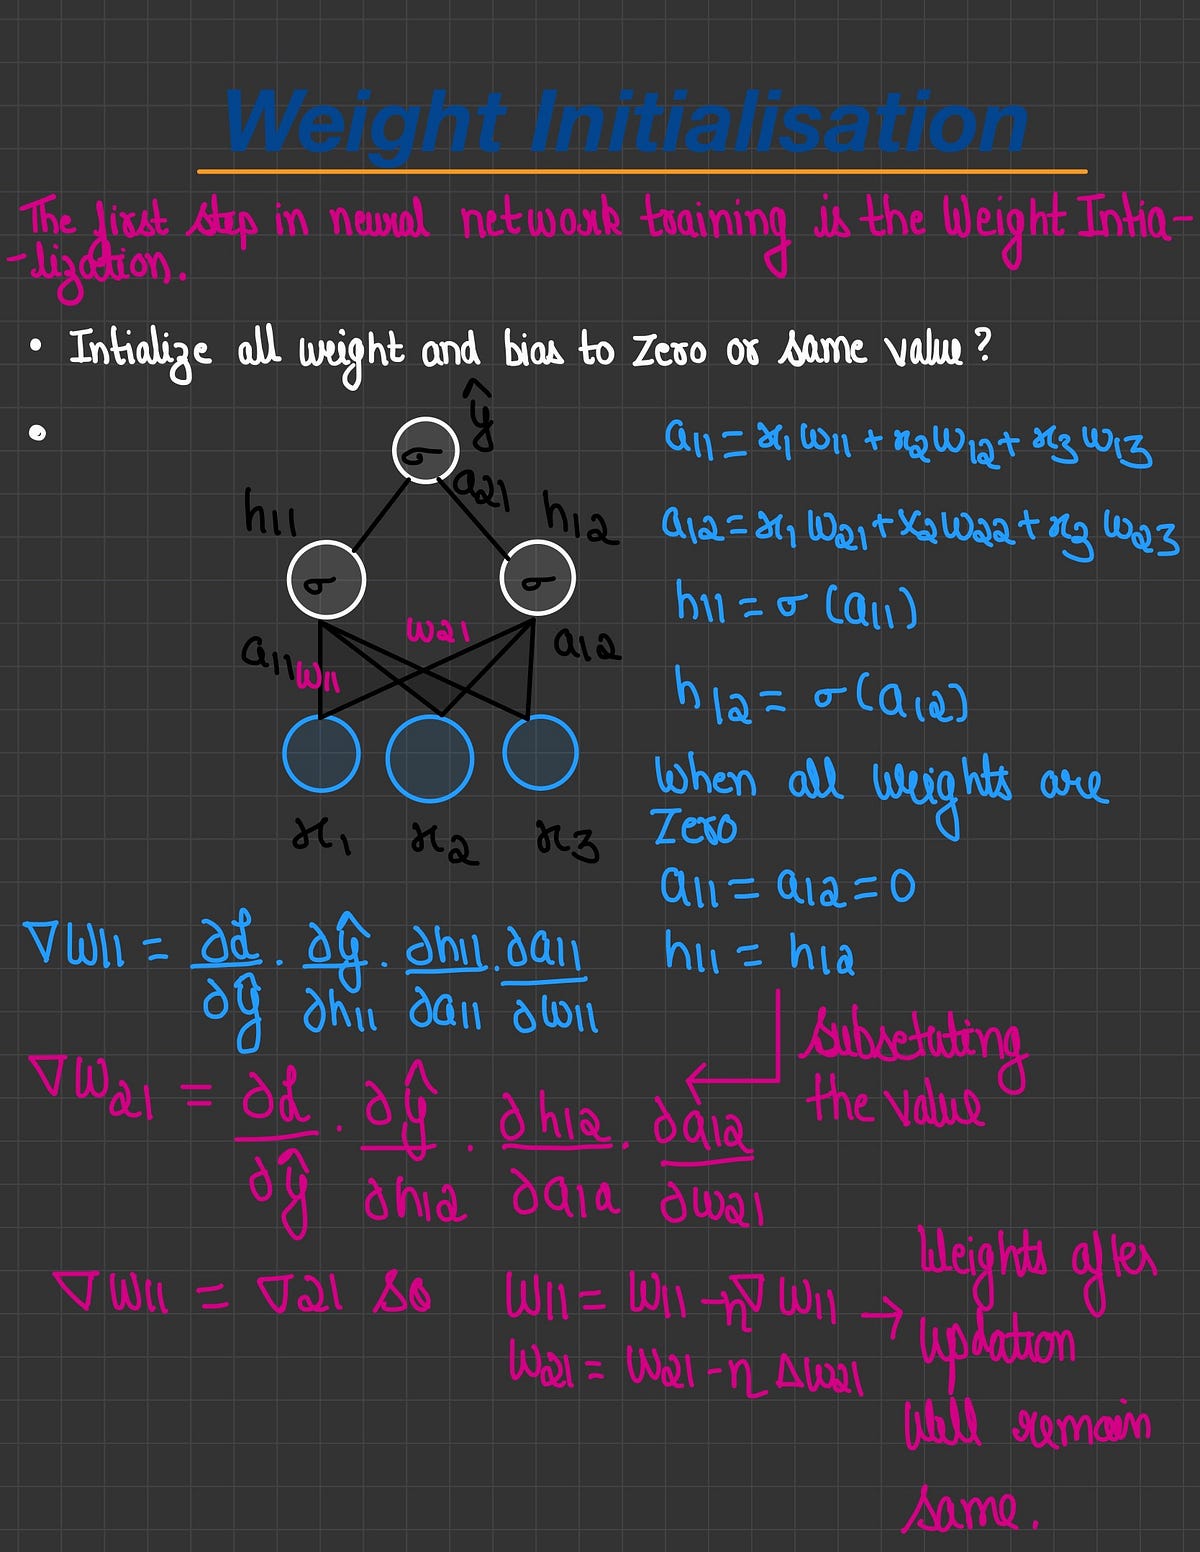 Weight Initialisation
The first step in neural network training is the Weight Intia-
-lization.
• Intialize all weight and bias to zero or same value?
•
ŷ
σ
a21
h11
h12
σ
σ
a11
w11
w21
a12
x1
x2
x3
a11 = x1 w11 + x2 w12 + x3 w13
a12 = x1 w21 + x2 w22 + x3 w23
h11 = σ (a11)
h12 = σ(a12)
When all weights are
Zero
a11 = a12 = 0
h11 = h12
Substituting
the value
∇W11 = ∂L/∂ŷ . ∂ŷ/∂h11 . ∂h11/∂a11 . ∂a11/∂w11
∇W21 = ∂L/∂ŷ . ∂ŷ/∂h12 . ∂h12/∂a12 . ∂a12/∂w21
∇W11 = ∇21 so
W11 = W11 - η∇W11 →
W21 = W21 - η ΔW21
Weights after
updation
Will remain
same.